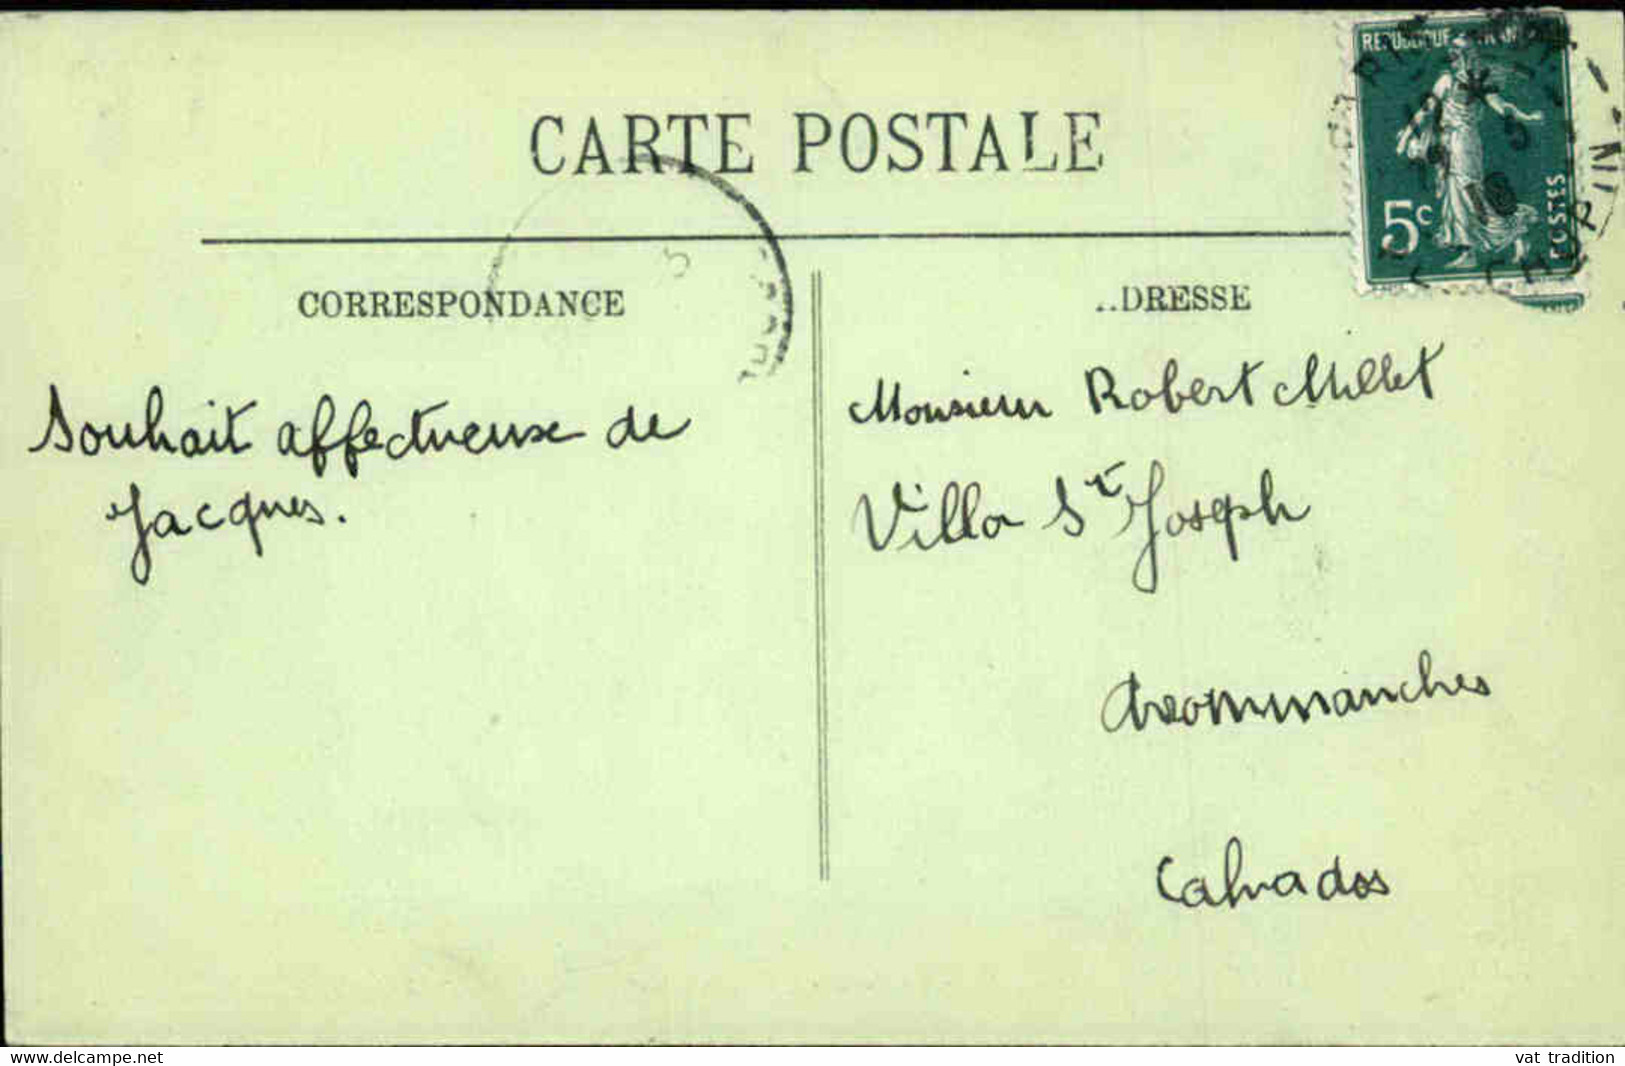 CARTE POSTALE
REPUBLIQUE FRAN
5c
POSTES
CORRESPONDANCE
DRESSE
Souhait affectueuse de
Jacques.
Monsieur Robert Millet
Villa St Joseph
Arommanches
Calvados
www.delcampe.net
vat_tradition